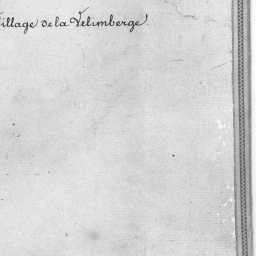 Village de la Velimberge.